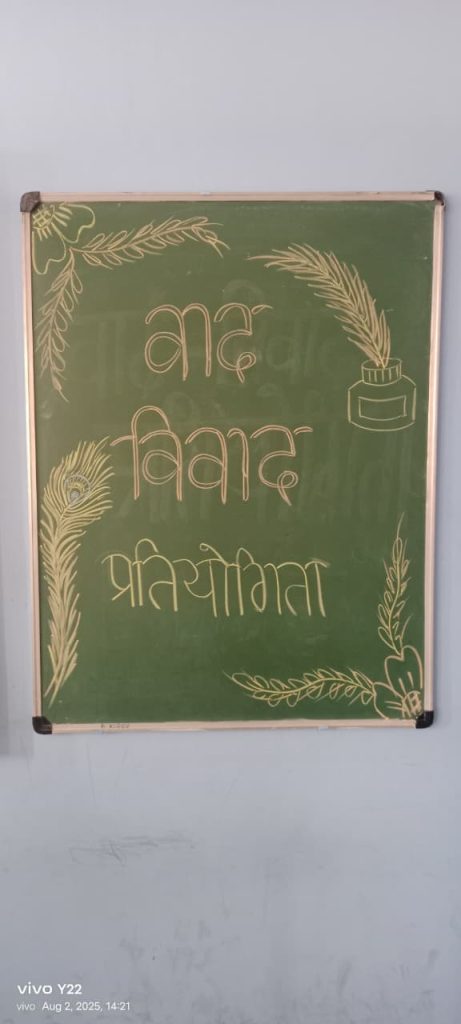 वाद
विवाद
प्रतियोगिता
vivo Y22
vivo Aug 2, 2025, 14:21